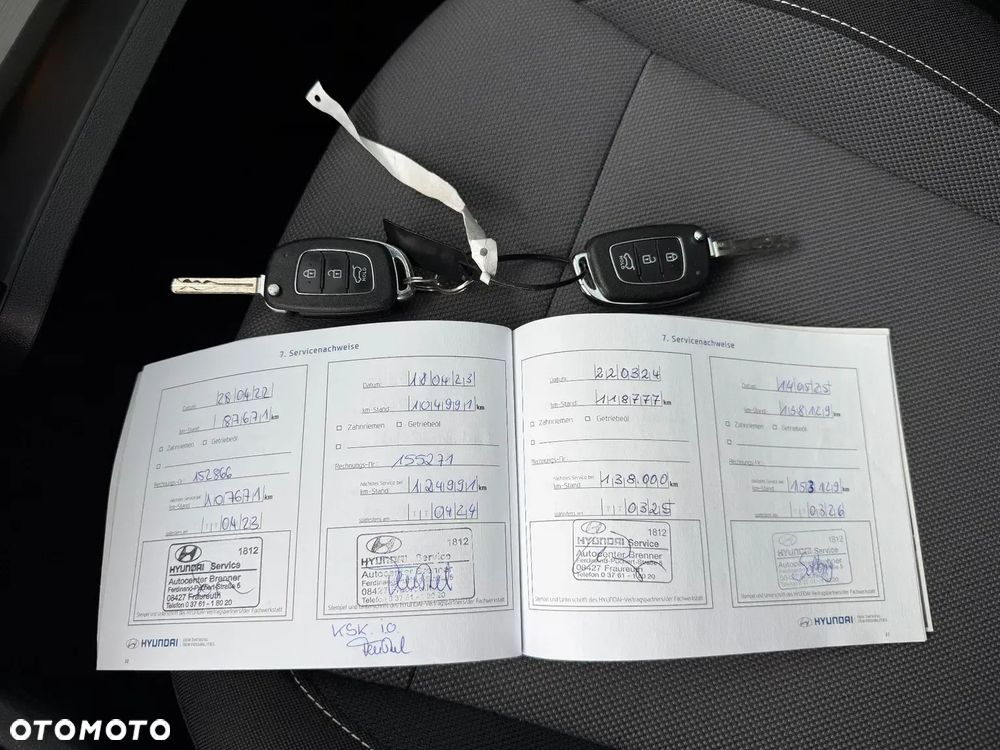 HOLD
HOLD
7. Servicenachweise
Datum: 28|04|22
km-Stand: 87671 km
Zahnriemen Getriebeöl
Rechnungs-Nr.: 152866
nächstes Service bei
km-Stand: 107671 km
04|23
HYUNDAI Service 1812
Autocenter Brenner
Ferdinand-Püchert-Straße 5
08427 Fraureuth
Telefon 0 37 61 - 1 60 20
Stempel und Unterschrift des HYUNDAI-Vertragspartners/der Fachwerkstatt
Datum: 18|04|23
km-Stand: 104991 km
Zahnriemen Getriebeöl
Rechnungs-Nr.: 155271
nächstes Service bei
km-Stand: 124991 km
04|24
HYUNDAI Service 1812
Autocenter Brenner
08427 Fraureuth
Telefon 0 37 61 - 1 60 20
Stempel und Unterschrift des HYUNDAI-Vertragspartners/der Fachwerkstatt
KSK i.O.
HYUNDAI NEW THINKING. NEW POSSIBILITIES.
7. Servicenachweise
Datum: 22|03|24
km-Stand: 118777 km
Zahnriemen Getriebeöl
Rechnungs-Nr.:
nächstes Service bei
km-Stand: 138.000 km
03|25
HYUNDAI Service 1812
Autocenter Brenner
Ferdinand-Püchert-Straße 5
08427 Fraureuth
Telefon 0 37 61 - 1 60 20
Stempel und Unterschrift des HYUNDAI-Vertragspartners/der Fachwerkstatt
Datum: 14|05|25
km-Stand: 138129 km
Zahnriemen Getriebeöl
Rechnungs-Nr.:
nächstes Service bei
km-Stand: 153129 km
03|26
HYUNDAI Service 1812
Autocenter Brenner
Stempel und Unterschrift des HYUNDAI-Vertragspartners/der Fachwerkstatt
HYUNDAI NEW THINKING. NEW POSSIBILITIES.
OTOMOTO